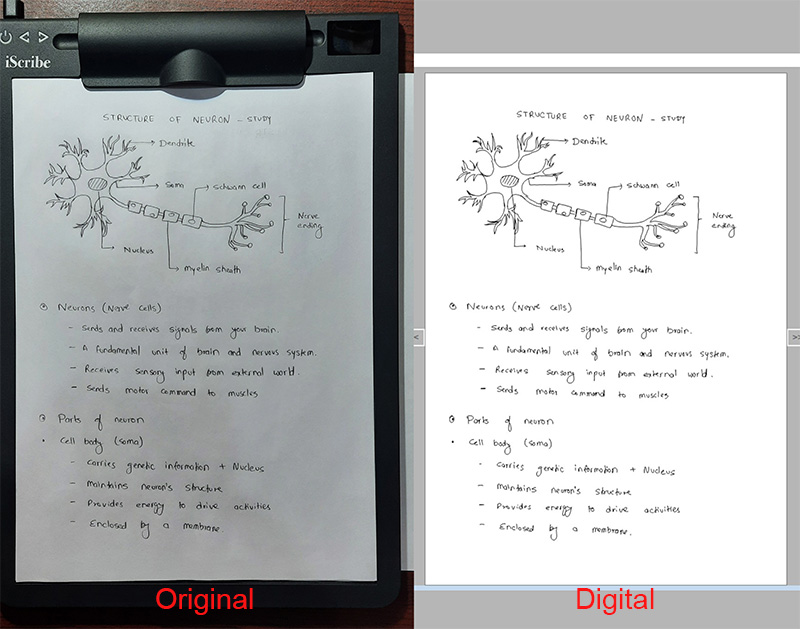 iScribe
STRUCTURE OF NEURON - STUDY
Dendrite
Soma
Schwann cell
Nerve
ending
Nucleus
myelin sheath
Neurons (Nerve cells)
- Sends and receives signals from your brain.
- A fundamental unit of brain and nervous system.
- Receives sensory input from external world.
- Sends motor command to muscles
Parts of neuron
• Cell body (soma)
- Carries genetic information + Nucleus
- Maintains neuron's structure
- Provides energy to drive activities
- Enclosed by a membrane.
Original
STRUCTURE OF NEURON - STUDY
Dendrite
Soma
Schwann cell
Nerve
ending
Nucleus
myelin sheath
Neurons (Nerve cells)
- Sends and receives signals from your brain.
- A fundamental unit of brain and nervous system.
- Receives sensory input from external world.
- Sends motor command to muscles
Parts of neuron
• Cell body (soma)
- Carries genetic information + Nucleus
- Maintains neuron's structure
- Provides energy to drive activities
- Enclosed by a membrane.
Digital